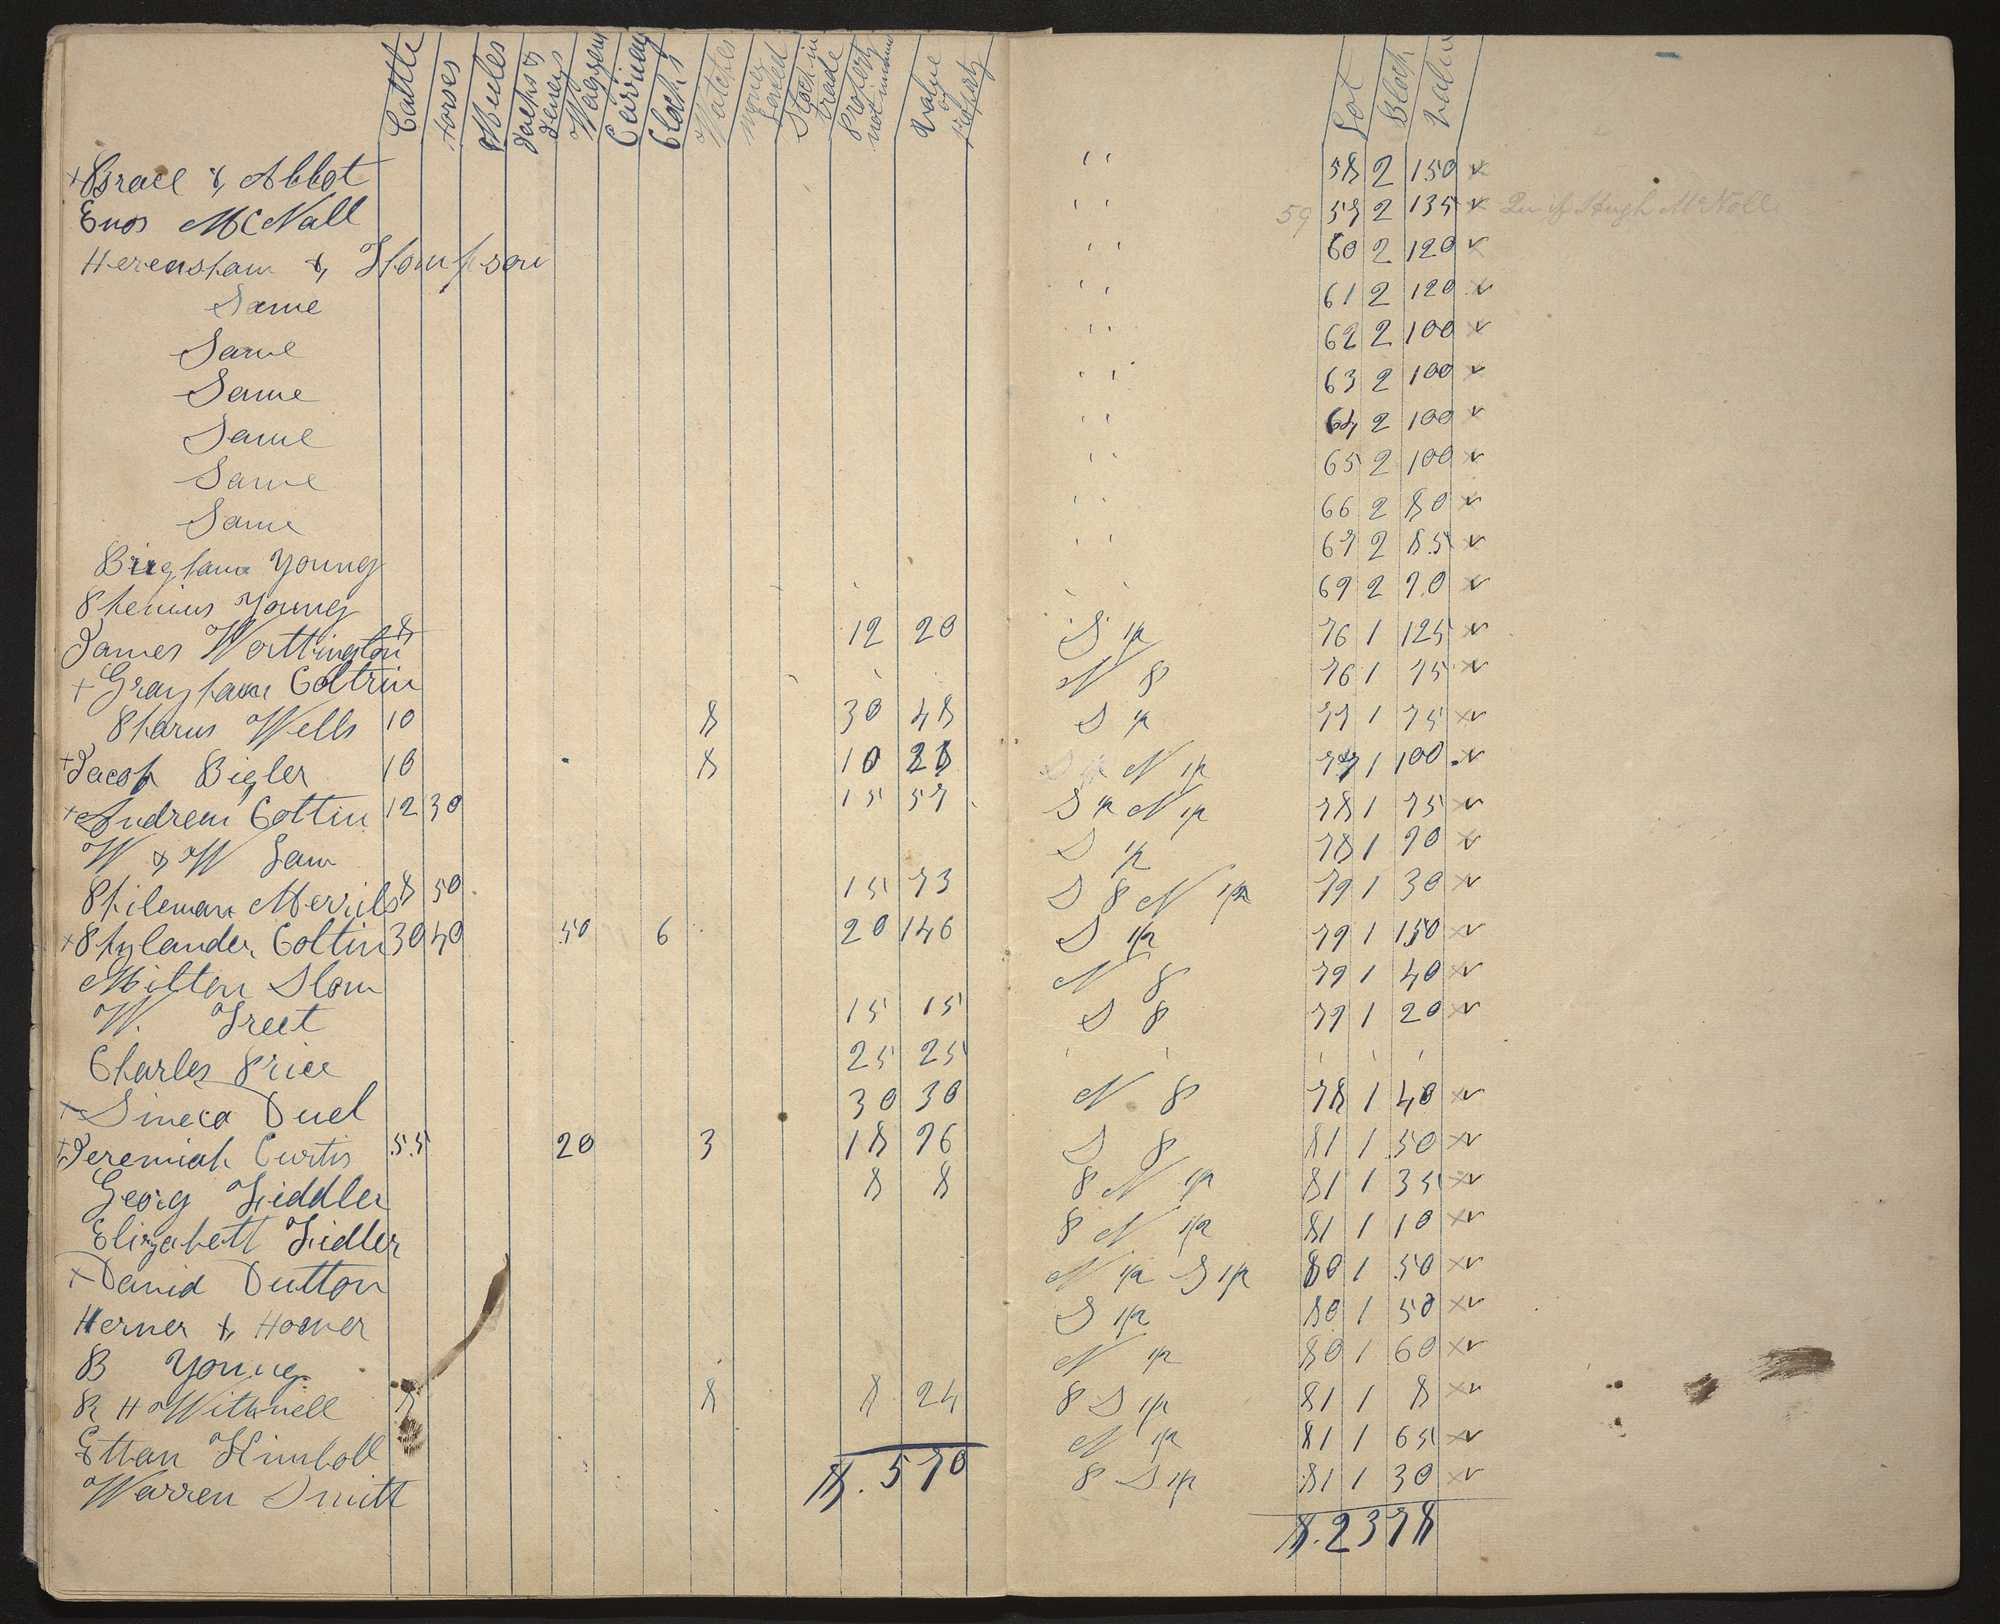 Cattle Horses Mules Jacks & Jeneys Waggons Carriages Clocks Watches Money Loaned Stock in trade Property not innum Value of Property Lot Block Value
+ Brace & Abbot " 58 2 150
Enos McNall " 59 57 2 135 Qu if Hugh McNall
Herensham & Thompson " 60 2 120
Same " 61 2 120
Same " 62 2 100
Same " 63 2 100
Same " 64 2 100
Same " 65 2 100
Same " 66 2 80
Brigham Young " 67 2 85
Phenius Young 69 2 70
James Worthington 8 12 20 S ½ 76 1 125
+ Grayham Coltrin N P 76 1 75
Pharus Wells 10 8 30 48 S ½ 77 1 75
+ Jacob Bigler 10 8 10 28 N ½ 77 1 100
+ Andrew Coltin 12 30 15 57 S ½ N ½ 78 1 75
W & W Law S ½ 78 1 70
Phileman Merrils 8 50 15 73 S P N ½ 79 1 30
+ Phylander Coltin 30 40 50 6 20 146 S ½ 79 1 150
Milton Slow N P 79 1 40
W. Treet 15 15 S P 79 1 20
Charles Price 25 25
+ Sineca Duel 30 30 N P 78 1 40
+ Jeremiah Curtis 55 20 3 18 96 S P 81 1 50
Georg Fiddler 8 8 P N ½ 81 1 35
Elizabett Fidler P N ½ 81 1 10
+ David Dutton N ½ S ½ 80 1 50
Herner & Hoover S ½ 80 1 50
B Young N ½ 80 1 60
R H Withnell 8 8 8 24 P S ½ 81 1 8
Ettan Kimball N ½ 81 1 65
Warren Smitt P S ½ 81 1 30
$. 570 $. 2378